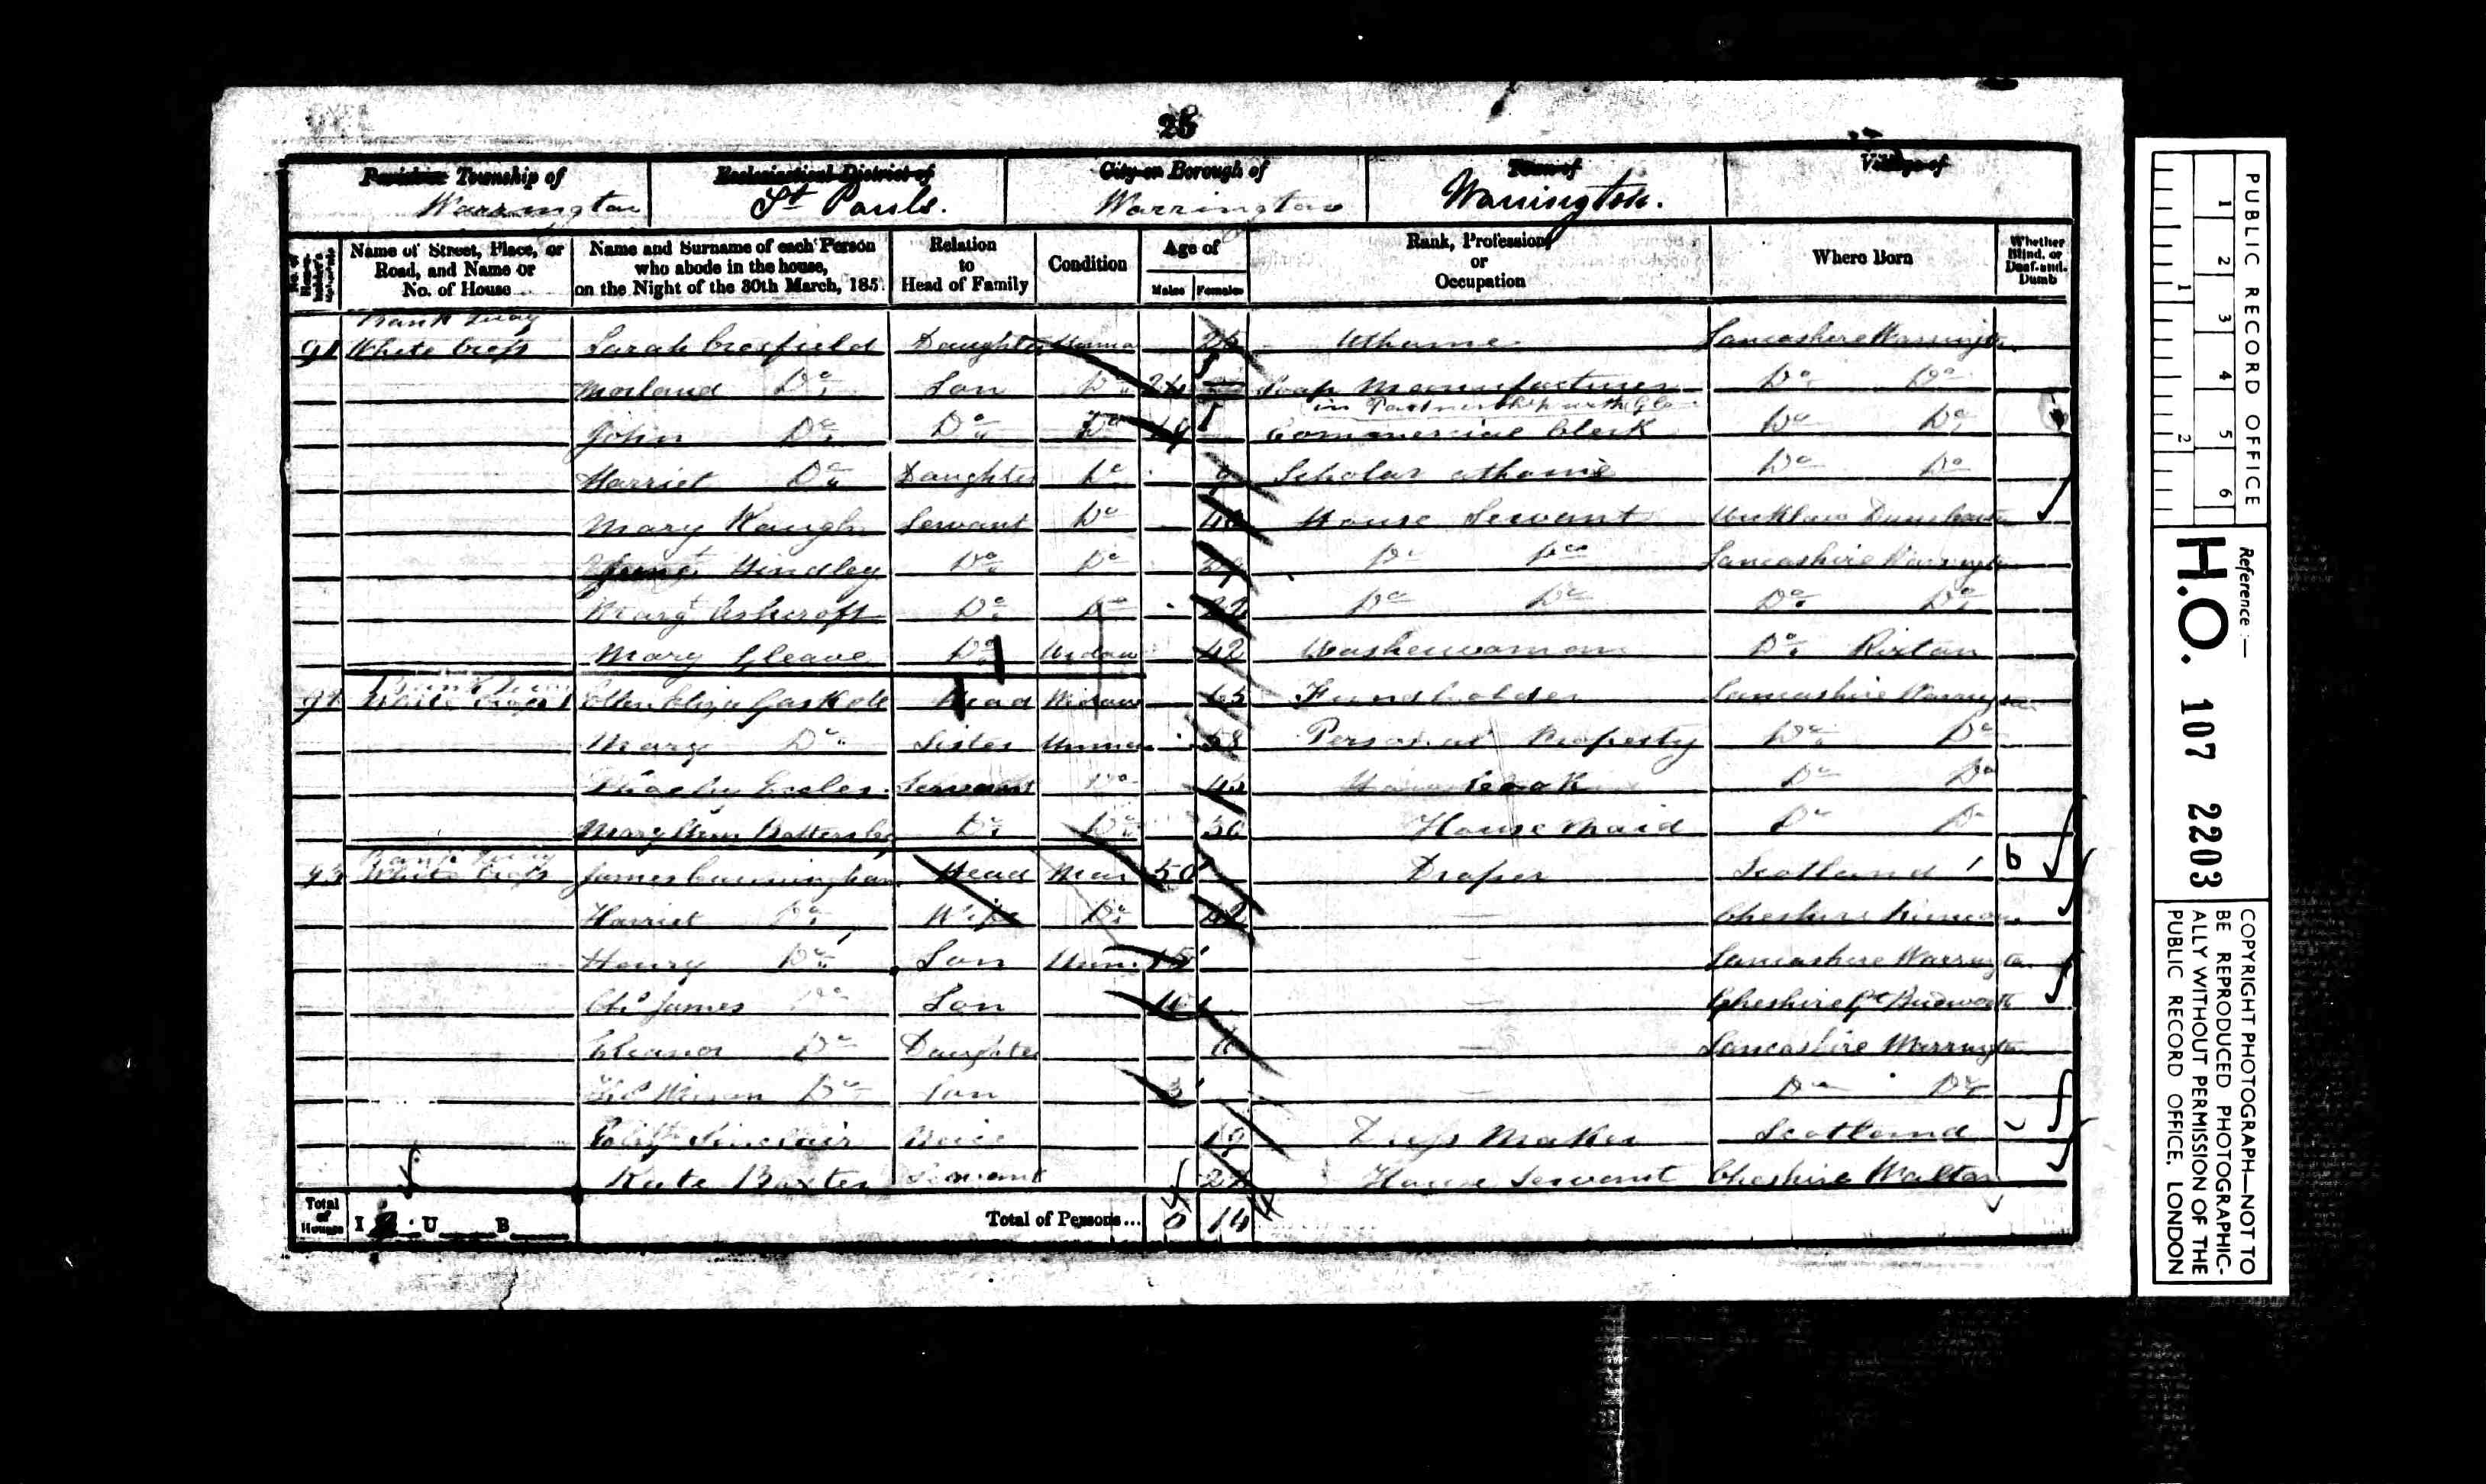 25
Parish or Township of
Warrington
Ecclesiastical District of
St Pauls.
City or Borough of
Warrington
Town of
Warrington.
Village of
Name of Street, Place, or Road, and Name or No. of House
Name and Surname of each Person who abode in the house, on the Night of the 30th March, 185
Relation to Head of Family
Condition
Age of
Males Females
Rank, Profession, or Occupation
Where Born
Whether Blind, or Deaf-and-Dumb
Bank Quay
91 White Cross Sarah Crosfield Daughter Unmar At home Lancashire Warrington
Morland Do Son Do 24 Soap Manufacturer Do Do
in Partnership with
John Do Do Do 19 Commercial Clerk Do Do
Harriet Do Daughter Do 9 Scholar at home Do Do
Mary Servant Do 40 House Servant
Hindley Do Do Do Do Lancashire Warrington
Margt Ashcroft Do Do 22 Do Do Do Do
Mary Gleave Do Widow 42 Washerwoman Do Rixton
Bank Quay
92 White Cross Ellen Eliza Gaskell Head Widow 65 Fundholder Lancashire Warrington
Mary Do Sister Unmar 58 Personal Property Do Do
Eccles Servant Do 45 Cook Do Do
Mary Ann Battersby Do Do 30 House Maid Do Do
Bank Quay
93 White Cross James Cunningham Head Mar 50 Draper Scotland b
Harriet Do Wife Do 42 Cheshire Runcorn
Henry Do Son Unm 15 Lancashire Warrington
Chs James Do Son Cheshire Gt Budworth
Eleanor Do Daughter Lancashire Warrington
Do Son 3 Do Do
Sinclair Neice 19 Dress Maker Scotland
Kate Baxter Servant House Servant Cheshire Walton
Total of Houses I U B
Total of Persons... 6 14
PUBLIC RECORD OFFICE
1 2 3 4 5 6
1 2
Reference :—
H.O. 107 2203
COPYRIGHT PHOTOGRAPH—NOT TO BE REPRODUCED PHOTOGRAPHIC-
ALLY WITHOUT PERMISSION OF THE PUBLIC RECORD OFFICE, LONDON